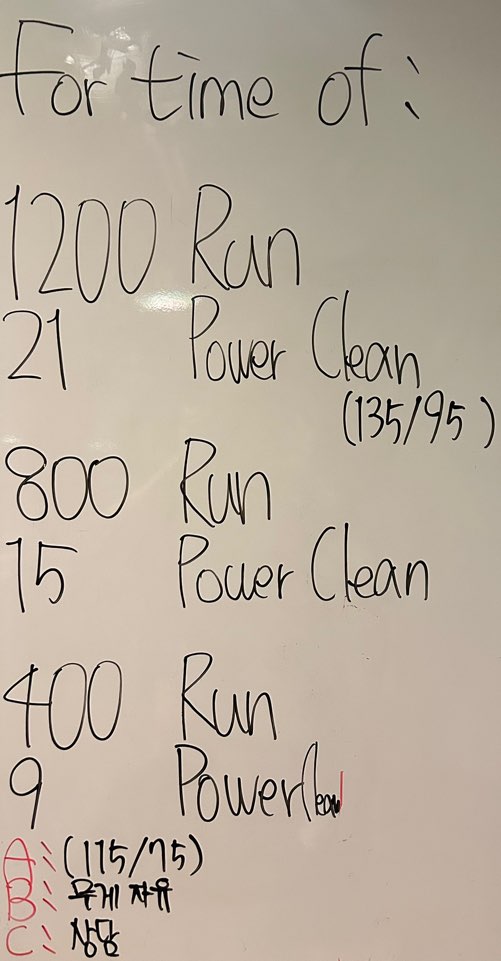 For time of:
1200 Run
21 Power Clean
(135/95)
800 Run
15 Power Clean
400 Run
9 Power Clean
A: (115/75)
B: 무게 자유
C: 상담